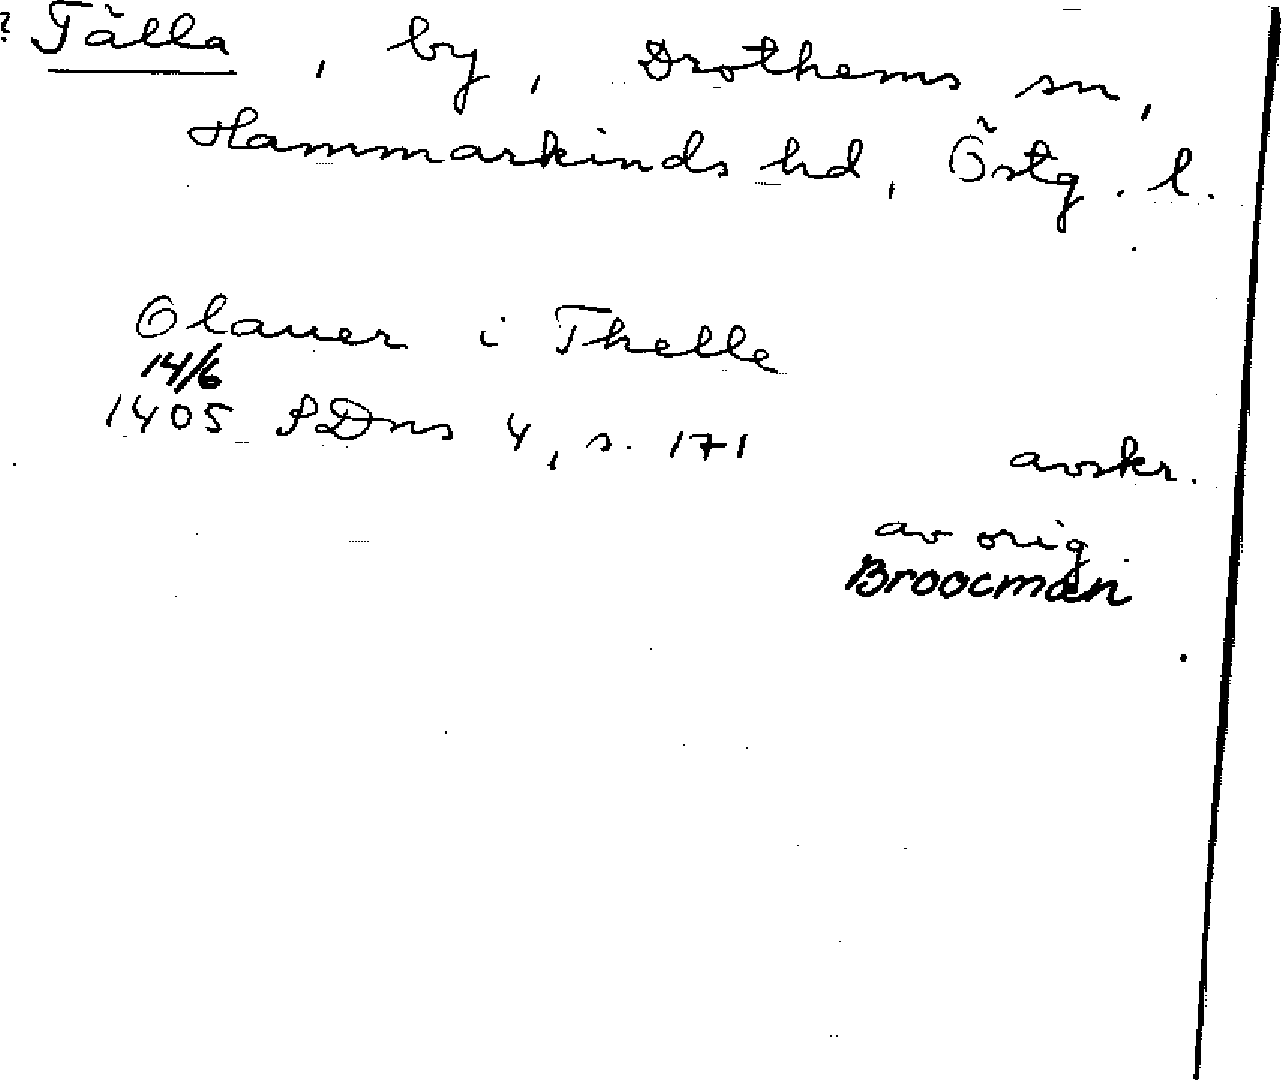 ? Tälla, by, Drothems sn,
Hammarkinds hd, Östg. l.
Olauer i Thelle
14/6
1405 SDns 4, s. 171
avskr.
av orig.
Broocman